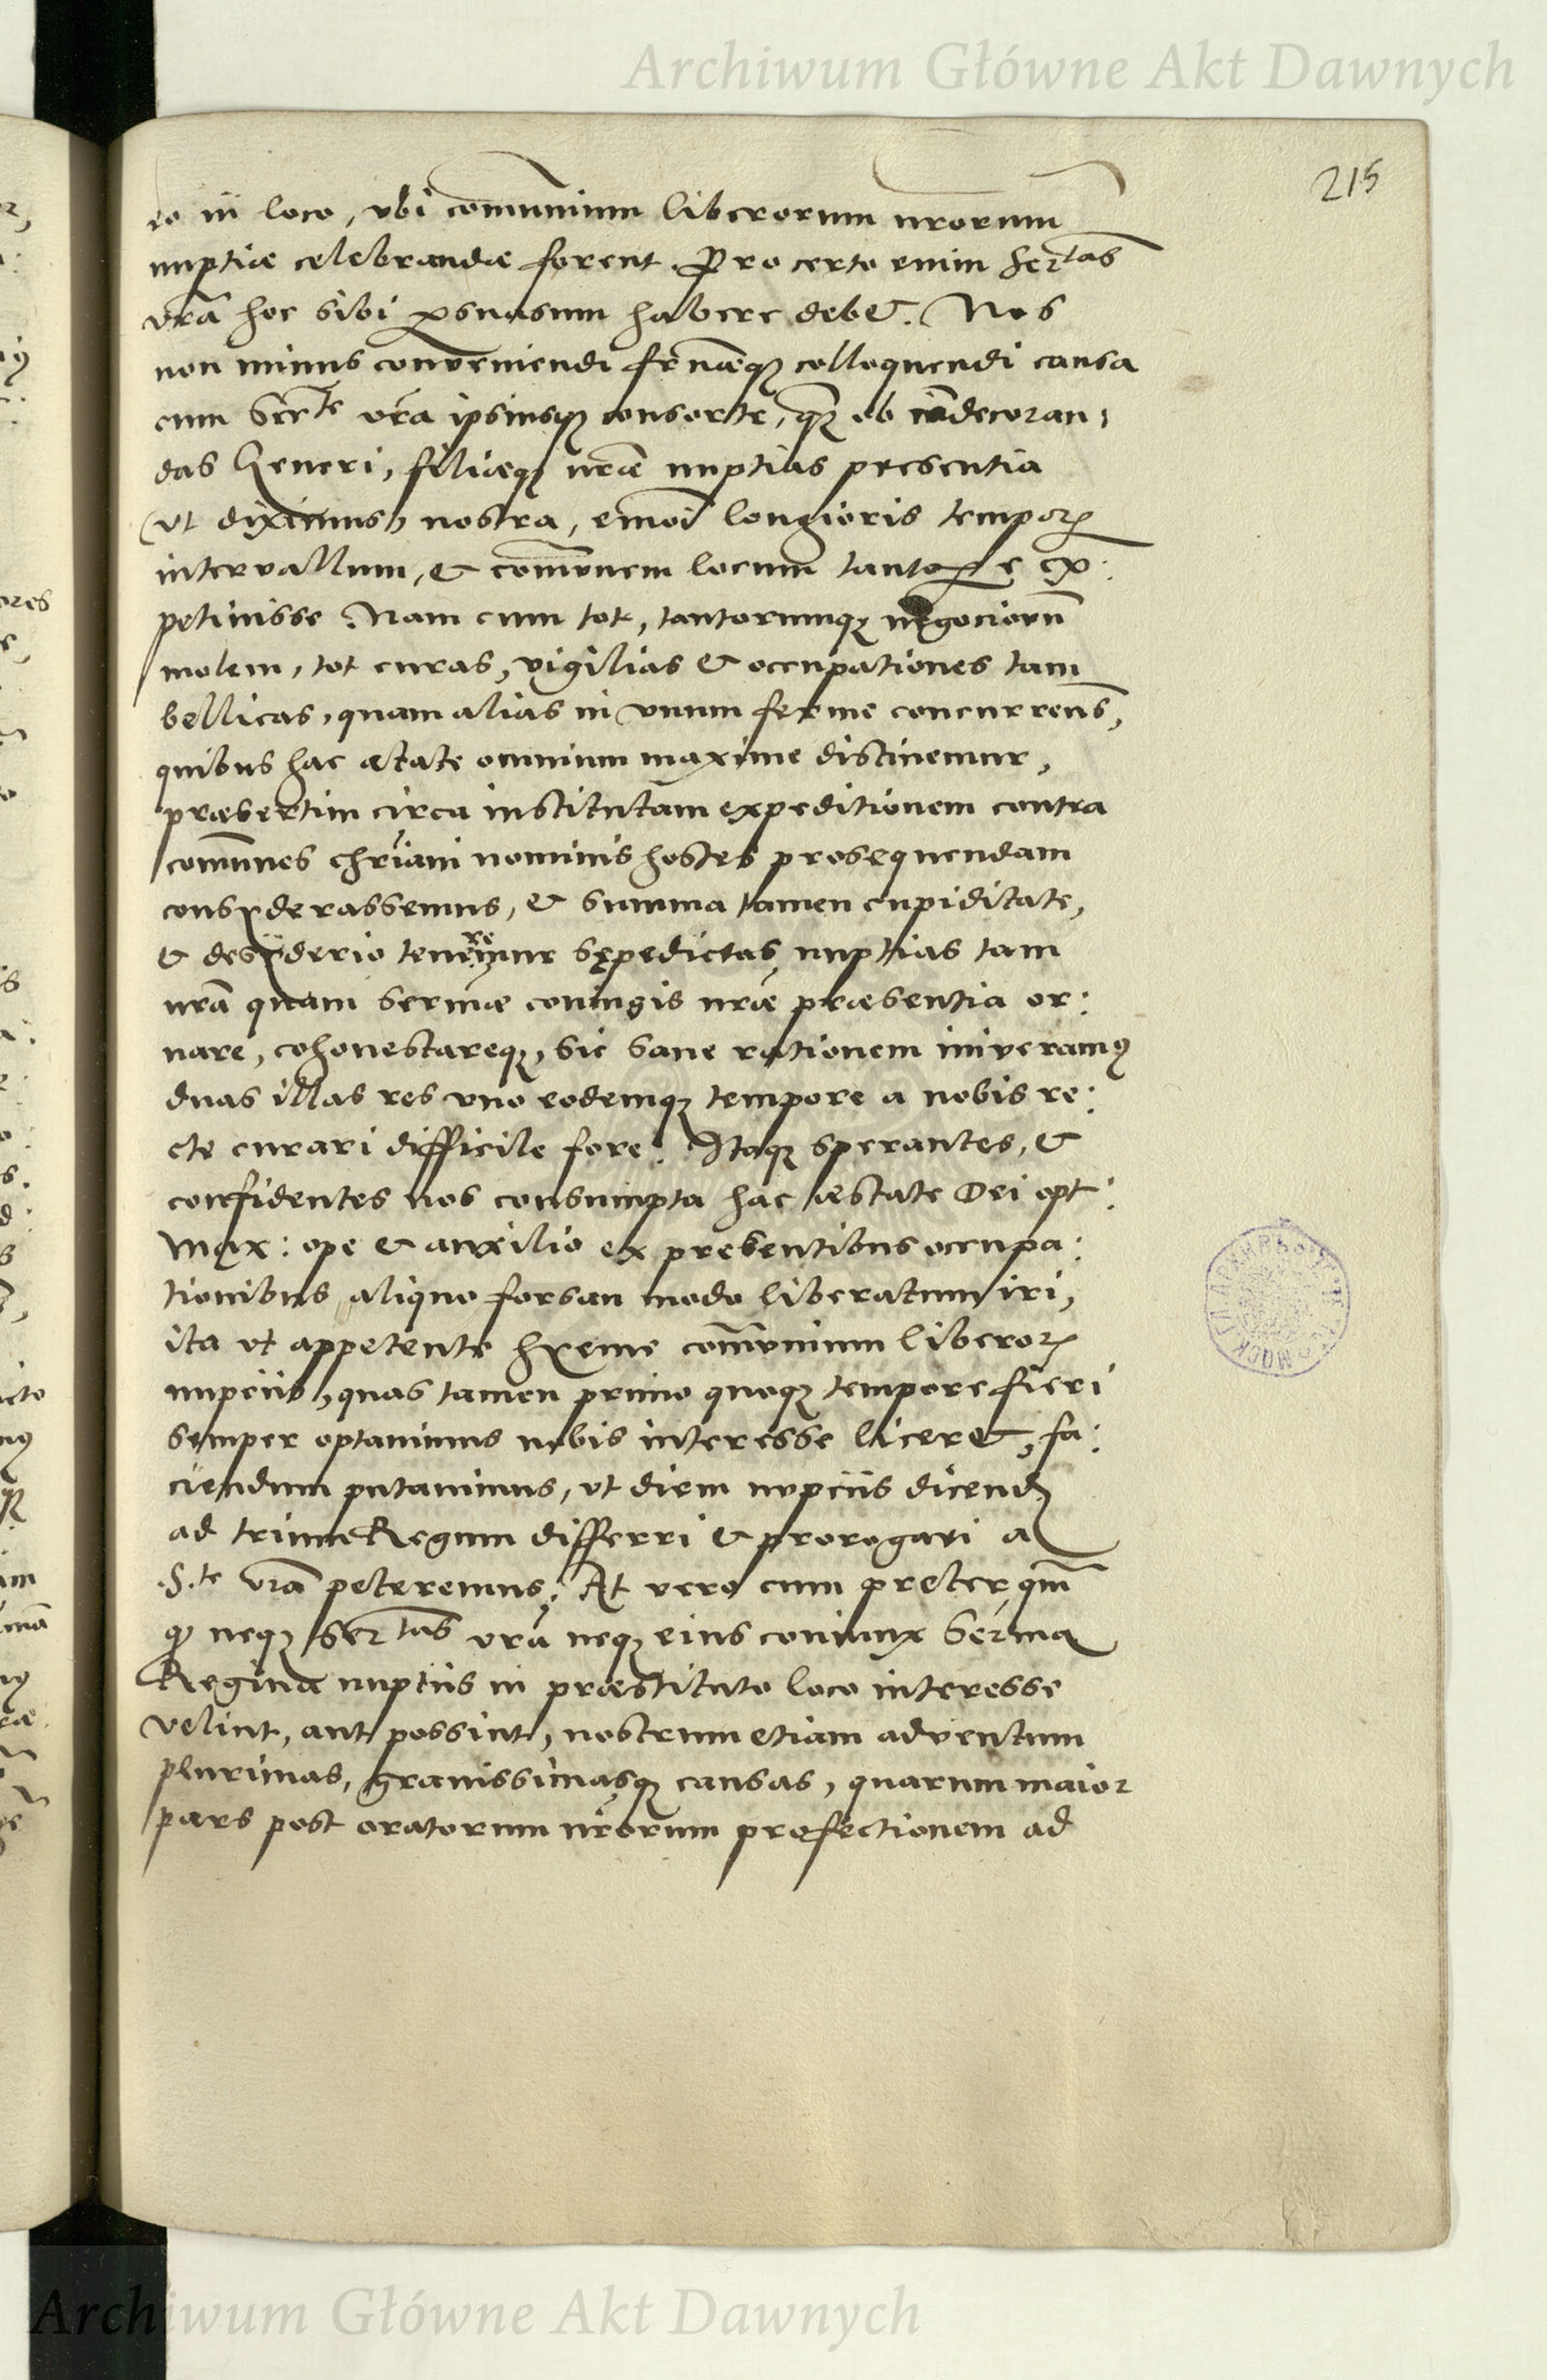 Archiwum Główne Akt Dawnych
215
eo in loco, vbi com̄unium liberorum nr̄orum
nuptiæ celebrandæ forent. Pro certo enim Sertas
vr̄a hoc sibi ꝑsuasum habere debet. Nos
non minus conveniendi
colloquendi causa
cum Serte vr̄a ipsiusqꝫ consorte, qꝫ ob condecoran,
das Generi, filiæqꝫ nr̄æ nuptias presentia
(ut diximus) nostra, eiusmodi longioris tempor̄
intervallum, & com̄unem locum tantoꝑe ex:
petiuisse. Nam cum tot, tantorumqꝫ negociorū
molem, tot curas, vigilias & occupationes tam
bellicas, quam alias in vnum ferme concurrens̄,
quibus hac ætate omnium maxime distinemur,
præsertim circa institutam expeditionem contra
com̄unes chr̄iani nominis hostes prosequendam
consyderassemus, & summa tamen cupiditate,
& desyderio teneremur sępedictas nuptias tam
nr̄a quam serm̄æ coniugis nr̄æ præsentia or:
nare, cohonestareqꝫ, sic sane rationem iniveramꝰ
duas illas res vno eodemqꝫ tempore a nobis re:
cte curari difficile fore. Itaqꝫ sperantes, &
confidentes nos consumpta hac æstate Dei opt:
Max: ope & auxilio ex presentibus occupa:
tionibus aliquo forsan modo liberatum iri,
ita vt appetente hyeme com̄unium liberor̄
nupciis, quas tamen primo quoqꝫ tempore fieri
semper optauimus nobis interesse liceret, fa:
ciendum putauimus, vt diem nupciis dicend̄
ad trium Regum differri & prorogari a
.S.te vr̄a peteremus. At vero cum preterqm̄
qꝫ neqꝫ Sertas vr̄a neqꝫ eius coniunx Ser̄ma
Regina nuptiis in præstituto loco interesse
velint, aut possint, nostrum etiam adventum
plurimas, grauissimasqꝫ causas, quarum maior
pars post oratorum nr̄orum profectionem ad
Archiwum Główne Akt Dawnych